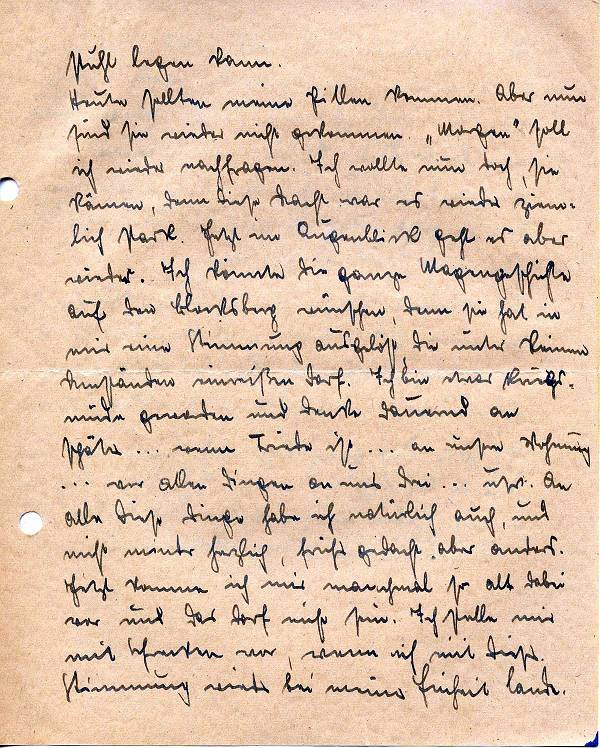 Stuhl legen kann.
Heute sollten meine Pillen kommen. Aber nun
sind sie wieder nicht gekommen. „Morgen" soll
ich wieder nachfragen. Ich wollte nun doch, sie
kämen, denn diese Nacht war es wieder ziem-
lich stark. Jetzt im Augenblick geht es aber
wieder. Ich könnte die ganze Magengeschichte
auf den Blocksberg wünschen, denn sie hat in
mir eine Stimmung ausgelöst, die unter keinen
Umständen einreißen darf. Ich bin etwas kriegs-
müde geworden und denke dauernd an
später ... wenn Friede ist ... an unsere Wohnung
... vor allen Dingen an uns drei ... usw. An
alle diese Dinge habe ich natürlich auch, und
nicht minder herzlich, früher gedacht, aber anders.
Jetzt komme ich mir manchmal so alt dabei
vor und das darf nicht sein. Ich stelle mir
mit Schrecken vor, wenn ich mit dieser
Stimmung wieder bei meiner Einheit lande.